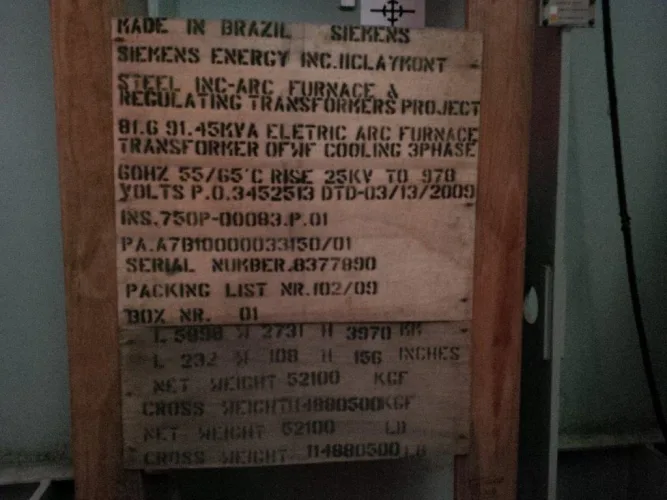 MADE IN BRAZIL SIEMENS
SIEMENS ENERGY INC.IICLAYMONT
STEEL INC-ARC FURNACE &
REGULATING TRANSFORMERS PROJECT
81.6 91.45KVA ELETRIC ARC FURNACE
TRANSFORMER OFWF COOLING 3PHASE
60HZ 55/65°C RISE 25KV TO 970
VOLTS P.O.3452513 DTD-03/13/2009
INS.750P-00083.P.01
PA.A7B10000033150/01
SERIAL NUMBER.8377890
PACKING LIST NR.102/09
BOX NR. 01
L 5898 W 2731 H 3970 MM
L 232 W 108 H 156 INCHES
NET WEIGHT 52100 KGF
CROSS WEIGHT 114880500KGF
NET WEIGHT 52100 LB
CROSS WEIGHT 114880500 LB